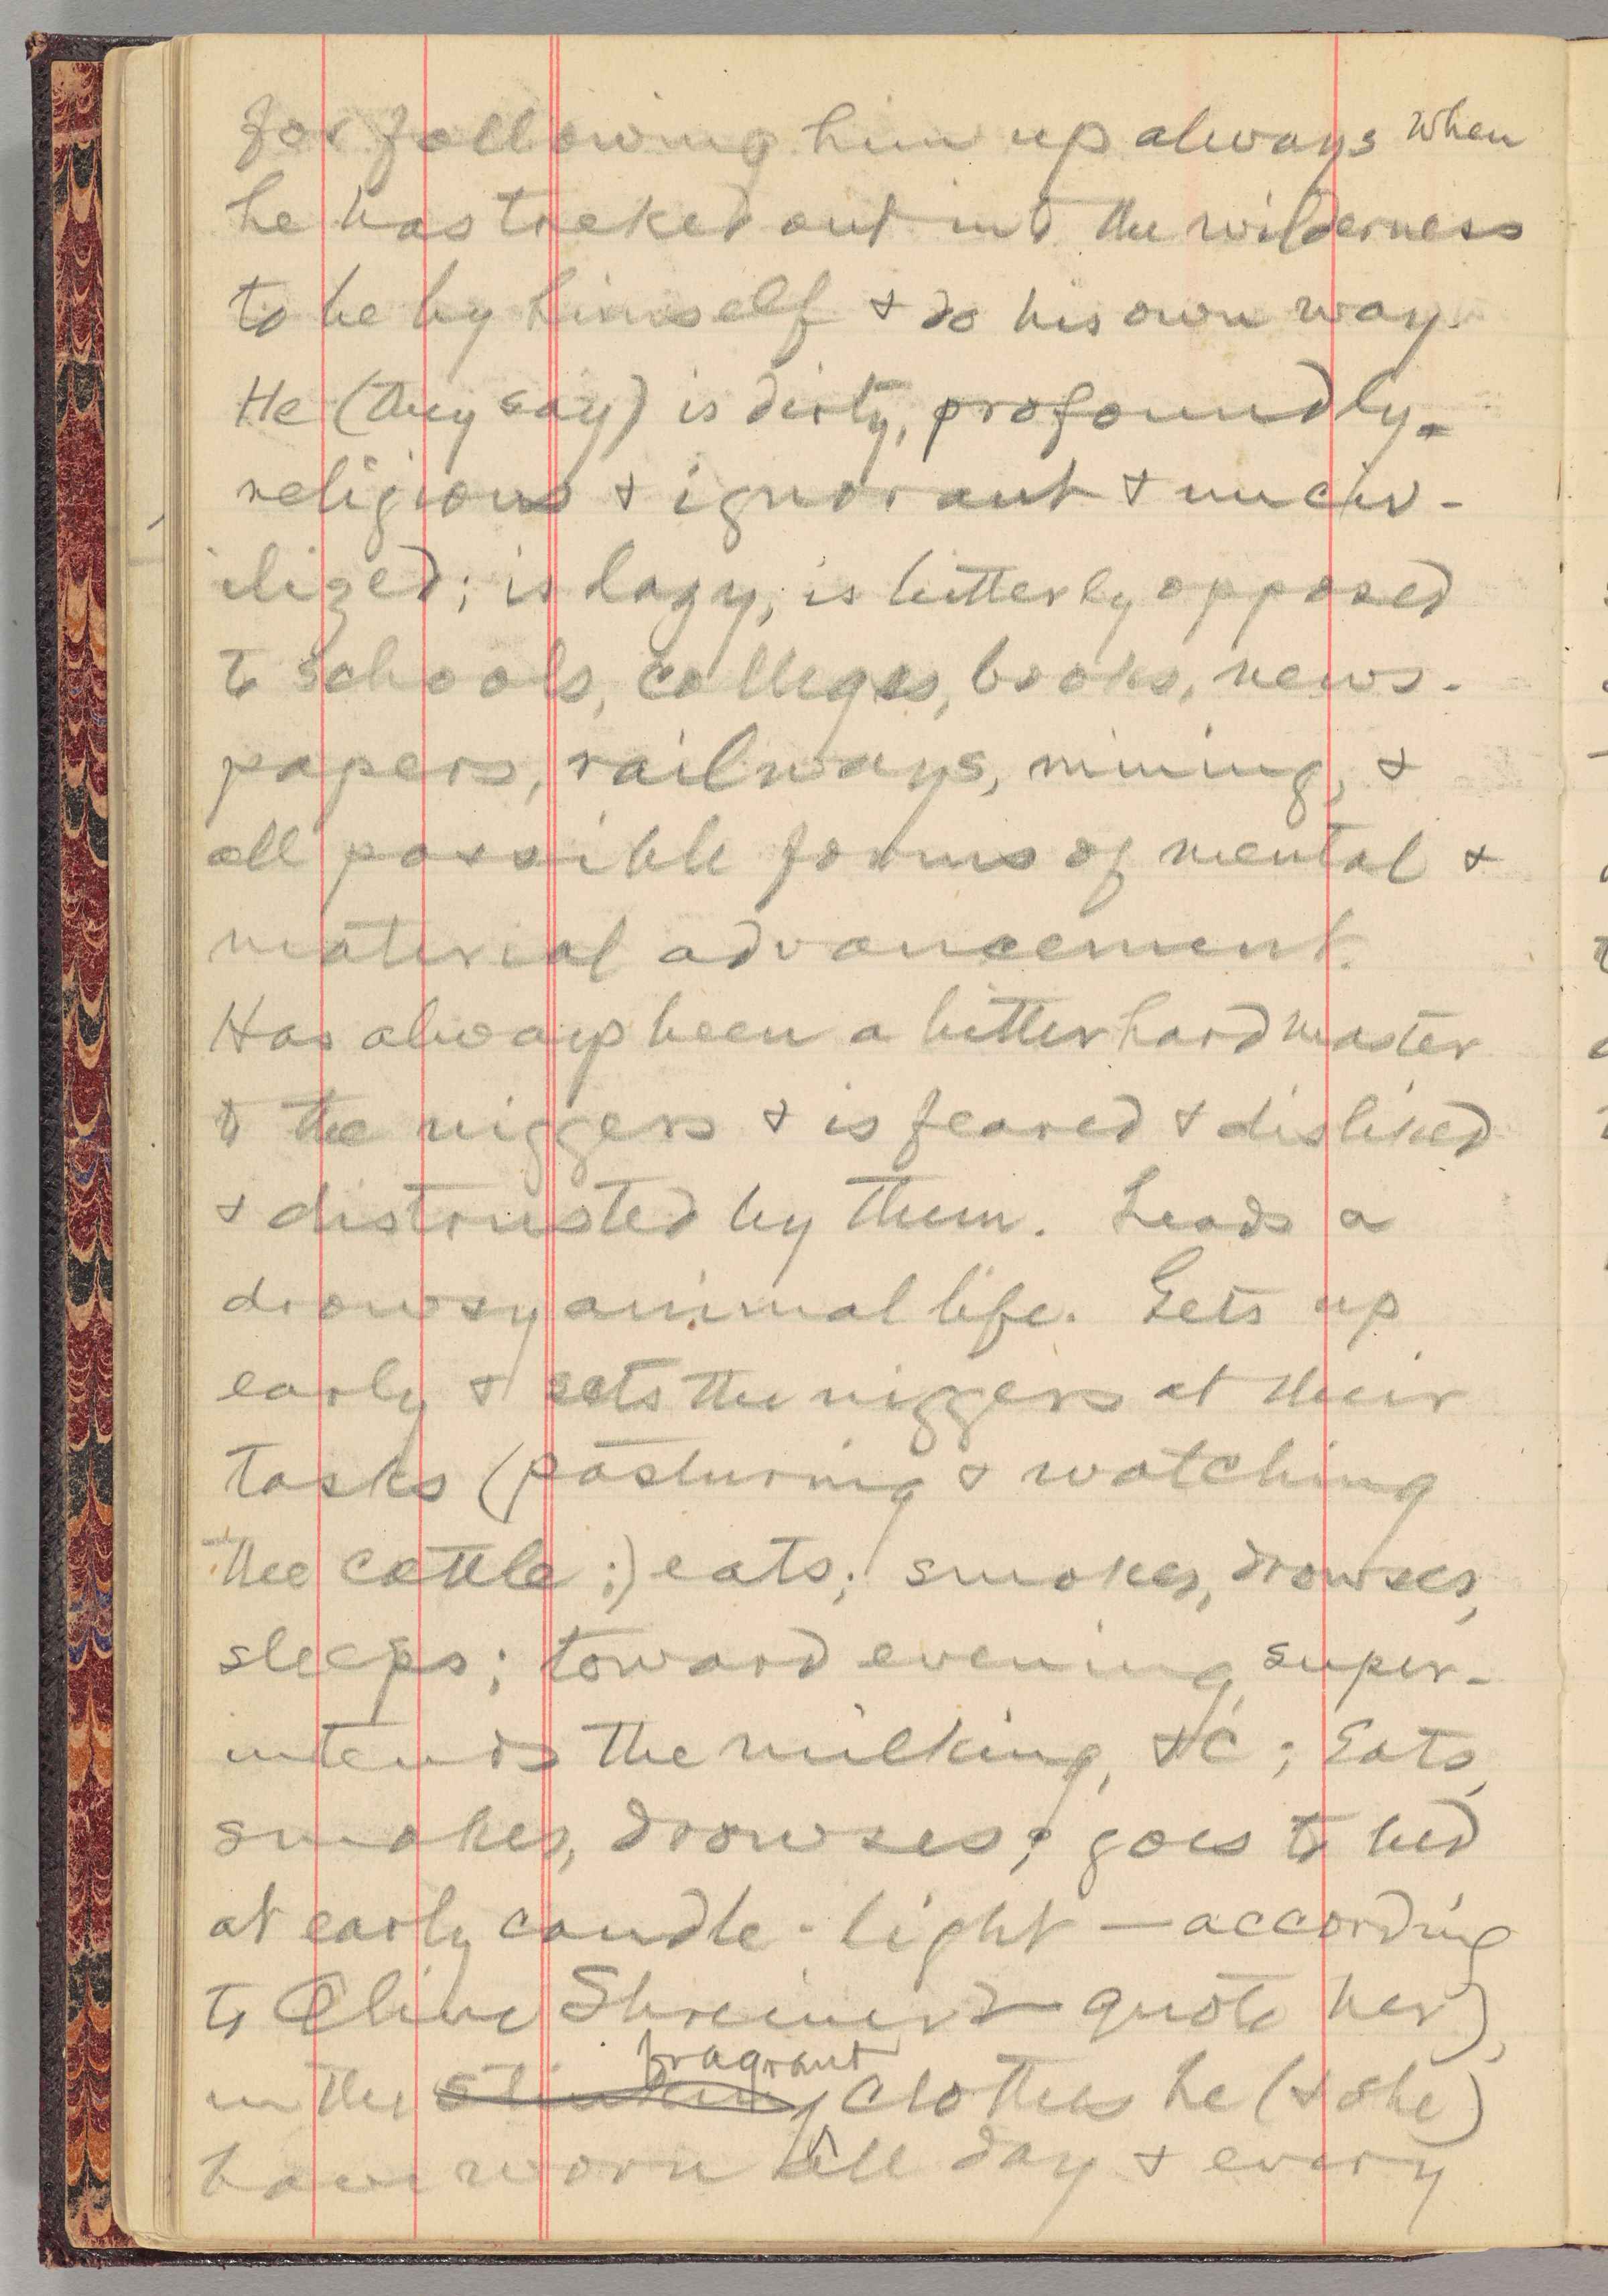 for following him up always when
he has treked out into the wilderness
to be by himself & do his own way.
He (they say) is dirty, profoundly
religious & ignorant & unciv-
ilized; is lazy; is bitterly opposed
to schools, colleges, books, news-
papers, railways, mining, &
all possible forms of mental &
material advancement.
Has always been a bitter hard master
to the niggers & is feared & disliked
& distrusted by them. Leads a
drowsy animal life. Gets up
early & sets the niggers at their
tasks (pasturing & watching
the cattle;) eats; smokes, drowses,
sleeps; toward evening super-
intends the milking, &c; Eats,
smokes, drowses; goes to bed
at early candle-light — according
to Olive Shreiner — quote her),
in the stinking fragrant clothes he (& she)
have worn all day & every